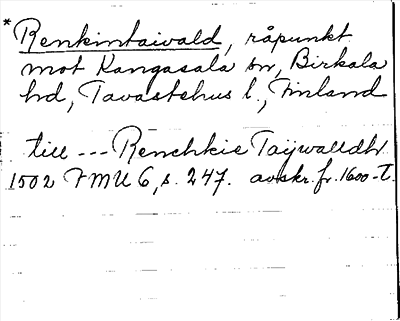 * Renkintaivald, råpunkt
mot Kangasala sn, Birkala
hd, Tavastehus l., Finland
till --- Renchkie Taÿwalldh
1502 FMU 6, s. 247. avskr. fr. 1600-t.